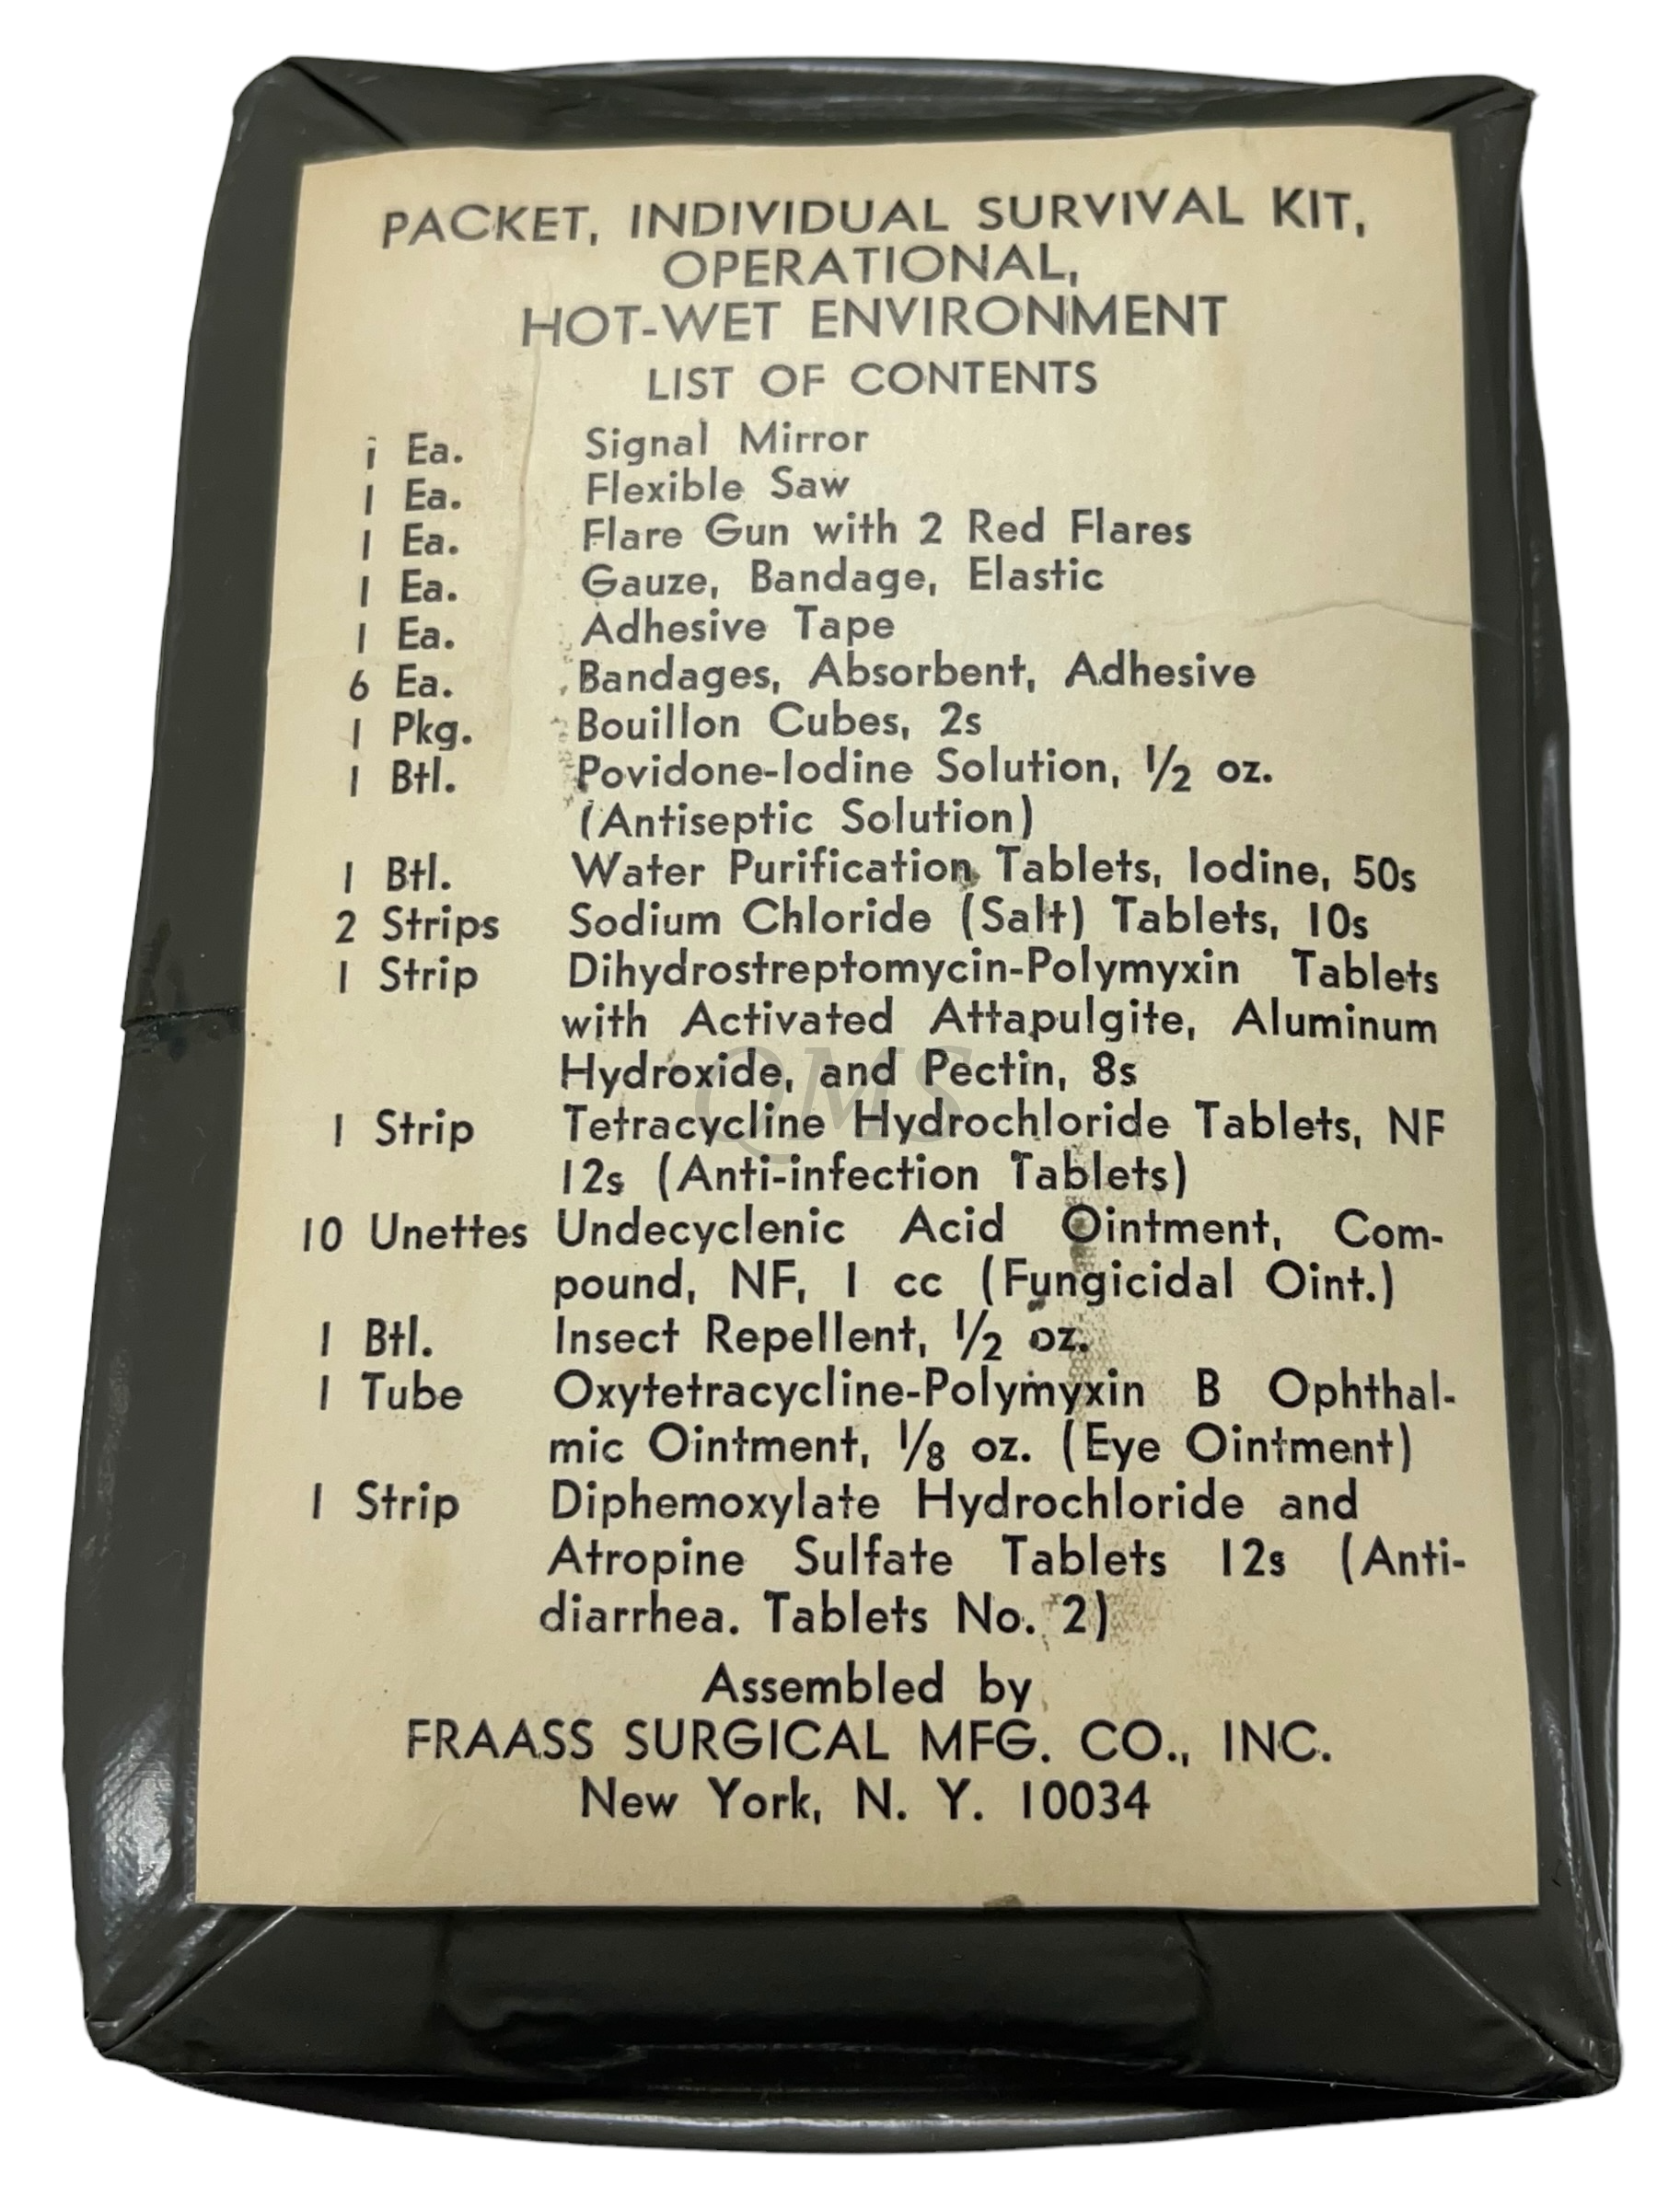 PACKET, INDIVIDUAL SURVIVAL KIT,
OPERATIONAL,
HOT-WET ENVIRONMENT
LIST OF CONTENTS
1 Ea. Signal Mirror
1 Ea. Flexible Saw
1 Ea. Flare Gun with 2 Red Flares
1 Ea. Gauze, Bandage, Elastic
1 Ea. Adhesive Tape
6 Ea. Bandages, Absorbent, Adhesive
1 Pkg. Bouillon Cubes, 2s
1 Btl. Povidone-Iodine Solution, 1/2 oz.
(Antiseptic Solution)
1 Btl. Water Purification Tablets, Iodine, 50s
2 Strips Sodium Chloride (Salt) Tablets, 10s
1 Strip Dihydrostreptomycin-Polymyxin Tablets
with Activated Attapulgite, Aluminum
Hydroxide, and Pectin, 8s
QMS
1 Strip Tetracycline Hydrochloride Tablets, NF
12s (Anti-infection Tablets)
10 Unettes Undecyclenic Acid Ointment, Com-
pound, NF, 1 cc (Fungicidal Oint.)
1 Btl. Insect Repellent, 1/2 oz.
1 Tube Oxytetracycline-Polymyxin B Ophthal-
mic Ointment, 1/8 oz. (Eye Ointment)
1 Strip Diphemoxylate Hydrochloride and
Atropine Sulfate Tablets 12s (Anti-
diarrhea. Tablets No. 2)
Assembled by
FRAASS SURGICAL MFG. CO., INC.
New York, N. Y. 10034